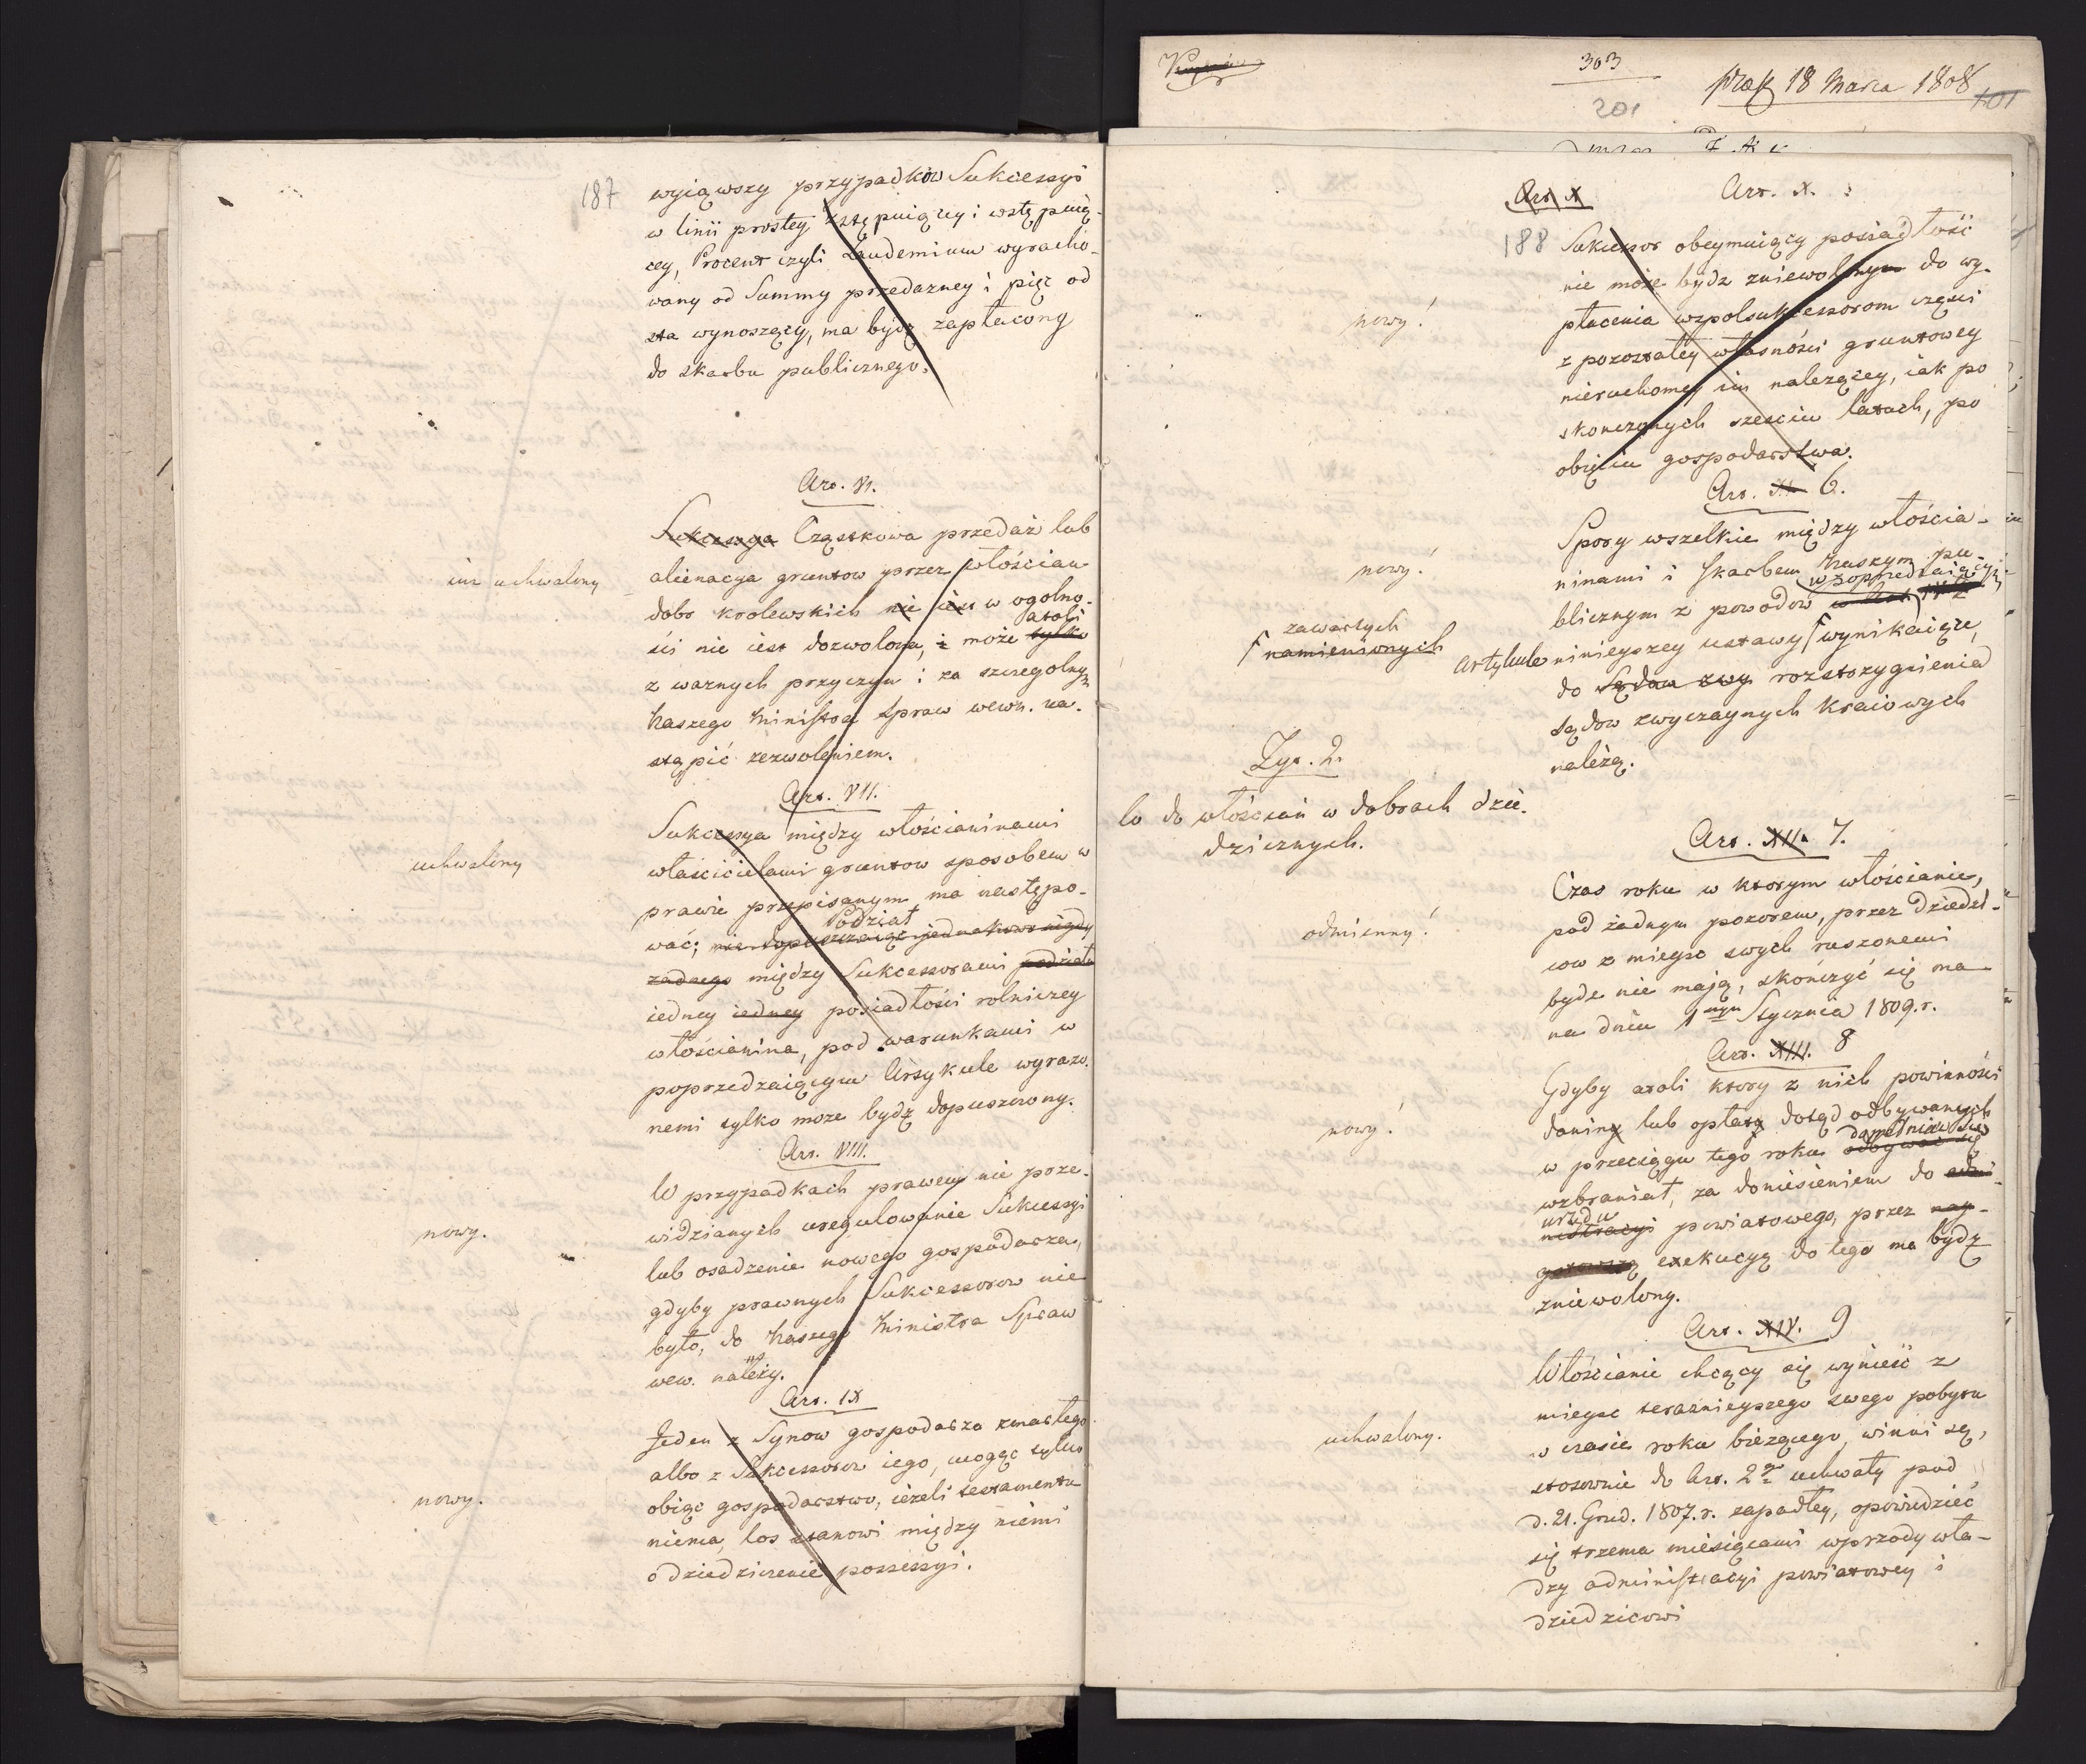 187
wyiąwszy przypadkow Sukcessyi
w linii prostey zstępuiącey i wstępuią-
cey, Procent czyli Laudemium wyracho-
wany od Summy przedazney i pięć od
sta wynoszący, ma bydź zapłacony
do skarbu publicznego.
Art. VI.
iuż uchwalony
Sukcessya Cząstkowa przedaż lub
alienacya gruntow przez włościan
dobr krolewskich nie iest w ogolno-
ści nie iest dozwolona, i może tylko
atoli
z ważnych przyczyn i za szczegolnym
Naszego Ministra Spraw wewn. na-
stąpić zezwoleniem.
Art. VII.
uchwalony
Sukcessya między włościaninami
właścicielami gruntow sposobem w
prawie przepisanym ma następo-
wać; nie dopuszczaiąc jednakowo nigdy
Podział
żadnego między Sukcessorami podziału
iedney iedney posiadłości rolniczey
włościanina, pod warunkami w
poprzedzaiącym Artykule wyrażo-
nemi tylko może bydź dopuszczony.
Art. VIII.
nowy.
W przypadkach prawem nie prze-
widzianych uregulowanie Sukcessyi
lub osadzenie nowego gospodarza,
gdyby prawnych Sukcessorow nie
było, do Naszego Ministra Spraw
wew. należy.
Art. IX
nowy.
Jeden z Synow gospodarza zmarłego
albo z Sukcessorow iego, mogąc tylko
obiąć gospodarstwo, ieżeli testamentu
niema, los stanowi między niemi
o dziedziczenie possessyi.
303
201
18 Marca 1808
101
Art. X
Art. X.
188
nowy!
Sukcessor obeymuiący posiadłość
nie może bydź zniewolonym do wy-
płacenia wspolsukcessorom części
z pozostałey własności gruntowey
nieruchomey im należącey, iak po
skończonych sześciu latach, po
obięciu gospodarstwa.
Art. XI. 6.
nowy!
Spory wszelkie między włościa-
ninami i Skarbem Naszym pu-
blicznym z powodow
w poprzedzaiącym
zawartych
namienionych
artykule ninieyszey ustawy wynikaiące,
do Sądow zwy rozstrzygnienia
sądow zwyczaynych kraiowych
należą.
Tyt. 2.
Co do włościan w dobrach dzie-
dzicznych.
Art. XII. 7.
odmienny!
Czas roku w ktorym włościanie,
pod żadnym pozorem, przez dziedzi-
cow z mieysc swych ruszonemi
bydź nie mają, skończyć się ma
na dniu 1nym Stycznia 1809. r.
Art. XIII. 8
nowy!
Gdyby atoli ktory z nich powinności
daniny lub opłaty dotąd odbywanych
w przeciągu tego roku odbywać się
dopełniania
wzbraniał, za doniesieniem do admi-
nistracyi powiatowego, przez nay-
urzędu
exekucyą do tego ma bydź
zniewolony.
Art. XIV. 9
uchwalony.
Włościanie chcący się wynieść z
mieysc teraźnieyszego swego pobytu
w czasie roku bieżącego winni są,
stosownie do Art. 2go uchwały pod
d. 21. Grud. 1807. r. zapadłey, opowiedzieć
się trzema miesiącami wprzody wła-
dzy administracyi powiatowey i
dziedzicowi